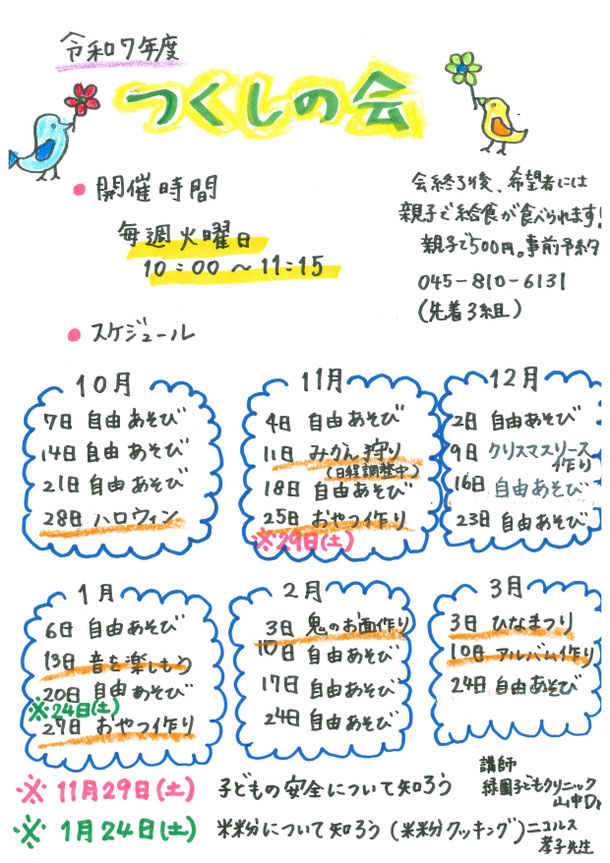 令和7年度
つくしの会
● 開催時間
毎週火曜日
10:00～11:15
会終了後、希望者には
親子で給食が食べられます!
親子で500円。事前予約
045-810-6131
(先着3組)
● スケジュール
10月
7日 自由あそび
14日 自由あそび
21日 自由あそび
28日 ハロウィン
11月
4日 自由あそび
11日 みかん狩り
(日経調整中)
18日 自由あそび
25日 おやつ作り
※29日(土)
12月
2日 自由あそび
9日 クリスマスリース
作り
16日 自由あそび
23日 自由あそび
1月
6日 自由あそび
13日 音を楽しもう
20日 自由あそび
※24日(土)
27日 おやつ作り
2月
3日 鬼のお面作り
10日 自由あそび
17日 自由あそび
24日 自由あそび
3月
3日 ひなまつり
10日 アルバム作り
24日 自由あそび
※ 11月29日(土) 子どもの安全について知ろう
講師
緑園子どもクリニック
山中Dr
※ 1月24日(土) 米粉について知ろう(米粉クッキング)ニコルス
孝子先生